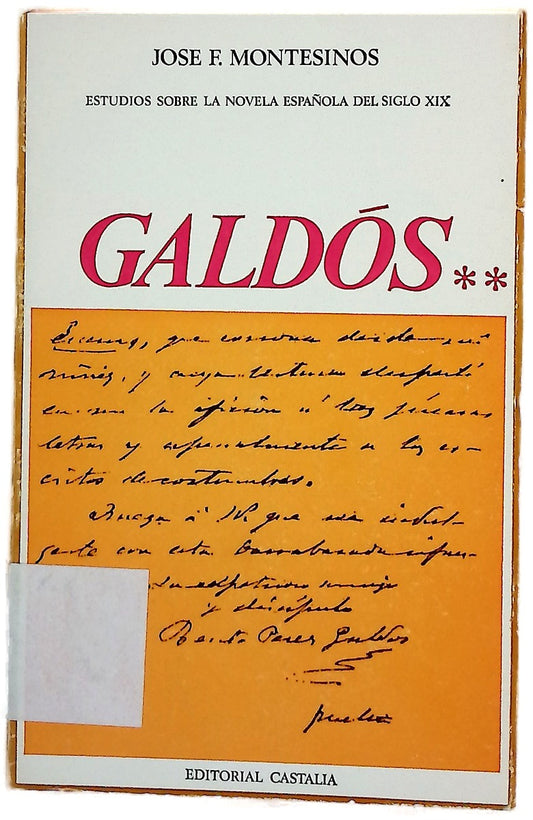 JOSE F. MONTESINOS
ESTUDIOS SOBRE LA NOVELA ESPAÑOLA DEL SIGLO XIX
GALDÓS**
Escenas, que conservo desde mi
niñez, y cuya lectura despertó
en mí la afición a las
letras y especialmente a los es-
critos de costumbres.
Ruego á V. que sea indul-
gente con esta
Su amigo
y discípulo
Benito Perez Galdós
EDITORIAL CASTALIA